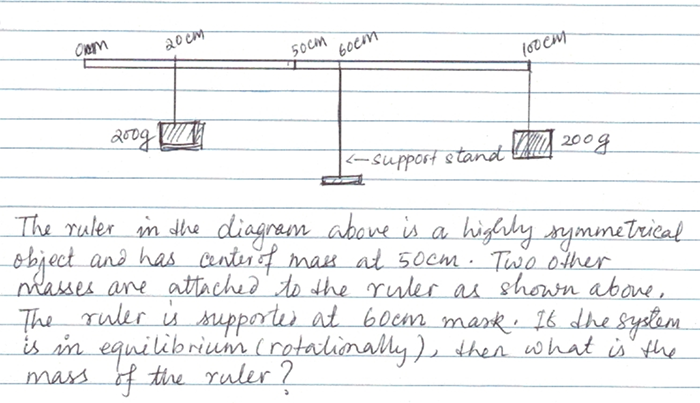 0mm 20cm 50cm 60cm 100cm
200g ←support stand 200g
The ruler in the diagram above is a highly symmetrical
object and has center of mass at 50cm. Two other
masses are attached to the ruler as shown above.
The ruler is supported at 60cm mark. If the system
is in equilibrium (rotationally), then what is the
mass of the ruler?